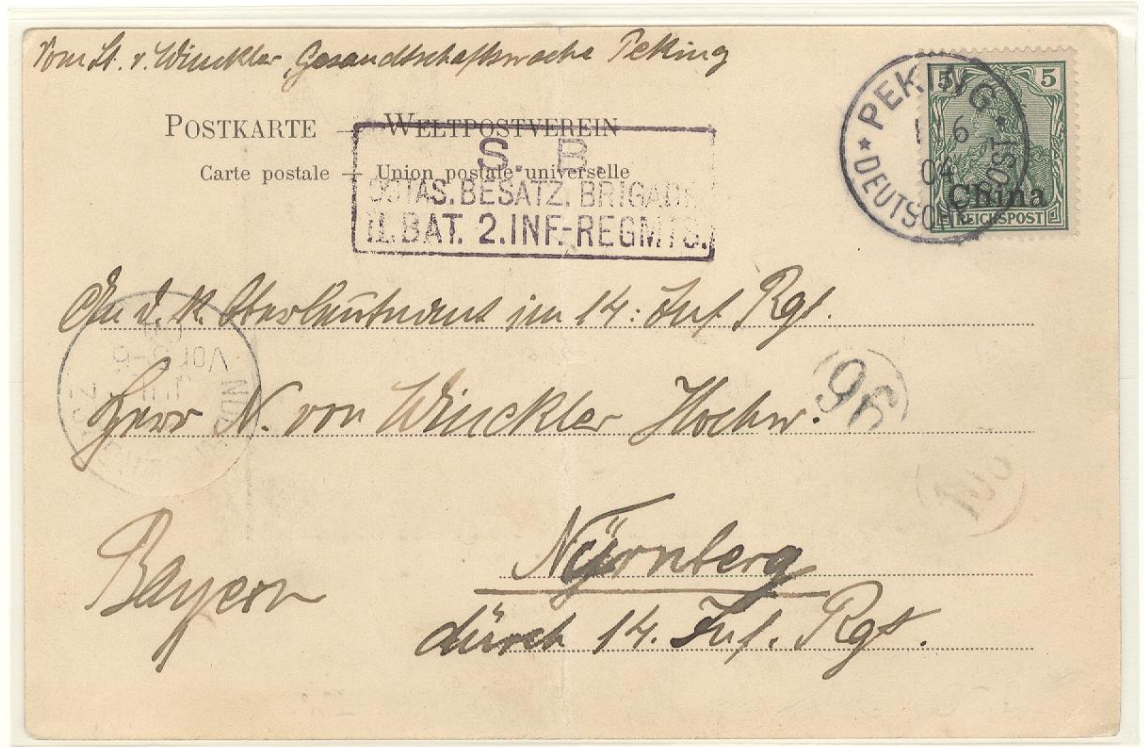 Vom Lt. v. Winckler, Gesandtschaftswache Peking
POSTKARTE – WELTPOSTVEREIN
Carte postale – Union postale universelle
S. B.
OSTAS. BESATZ. BRIGADE
II. BAT. 2. INF.-REGMTS.
5 5
China
REICHSPOST
* PEKING *
6
04
DEUTSCHE POST
An d. K. Oberleutnant im 14. Inf. Rgt.
Herr N. von Winckler Hochw.
Vor
5-6
96
Nürnberg
Bayern
durch 14. Inf. Rgt.